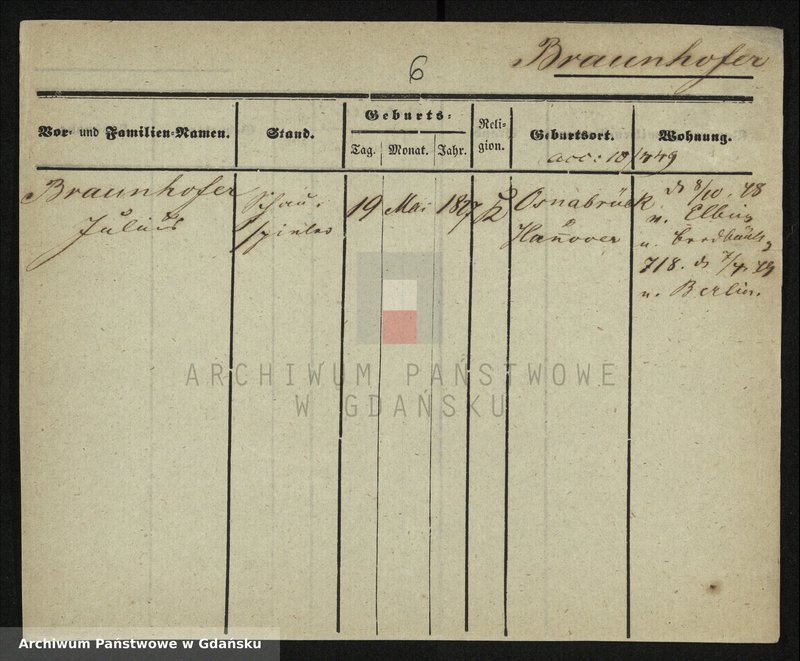 6
Braunhofer
Vor- und Familien-Namen.
Stand.
Geburts-
Tag.
Monat.
Jahr.
Reli-
gion.
Geburtsort.
Wohnung.
acc: 10/4 49
Braunhofer
Julius
Schau-
spieler
19
Mai
1827
Osnabrück
Hannover
d 8/10. 48
n. Elbing
u.
718. d 7/4. 49
n. Berlin.
ARCHIWUM PAŃSTWOWE
W GDAŃSKU
Archiwum Państwowe w Gdańsku